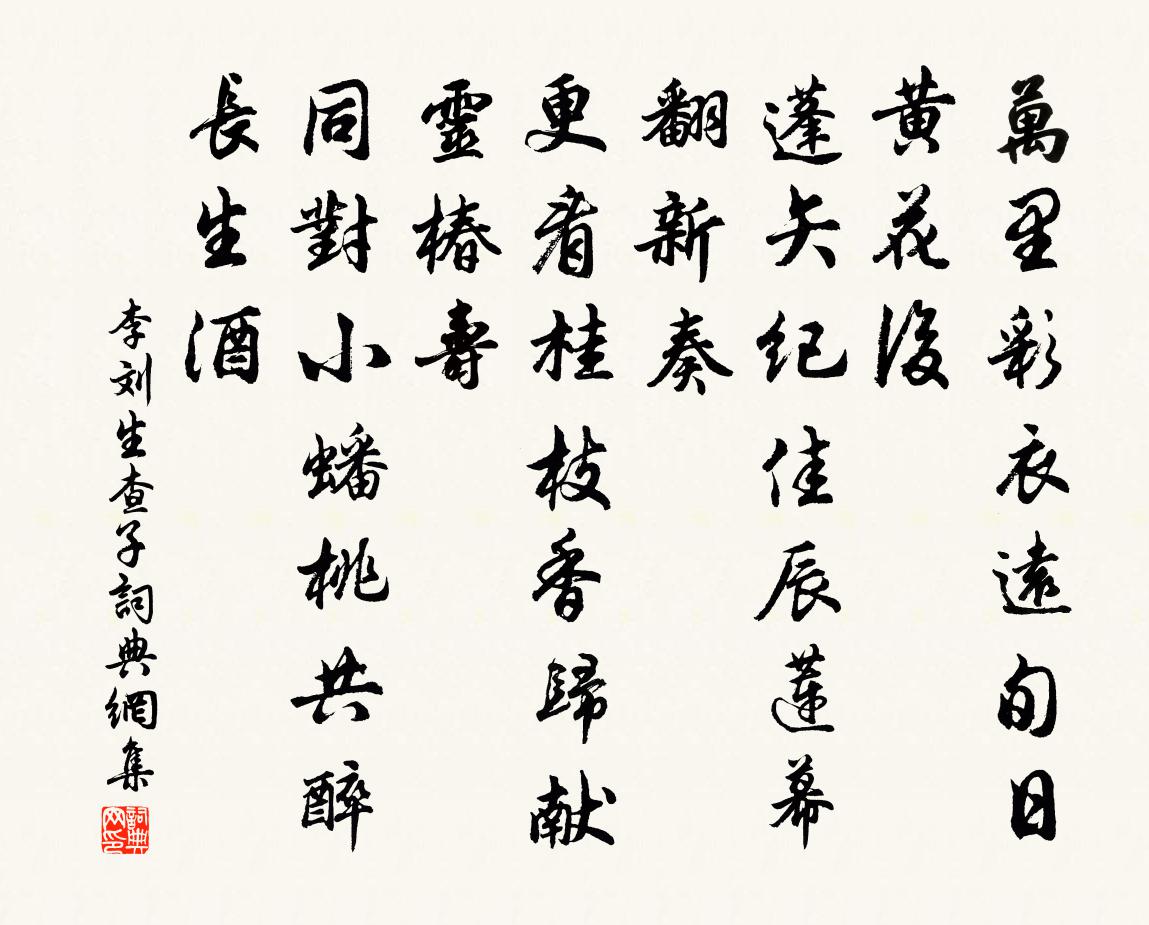 萬里彩衣遠旬日
黃花後
蓬矢紀佳辰蓮幕
翻新奏
更看桂枝香歸献
靈椿壽
同對小蟠桃共醉
長生酒
李刘生查子詞典網集
詞典网印